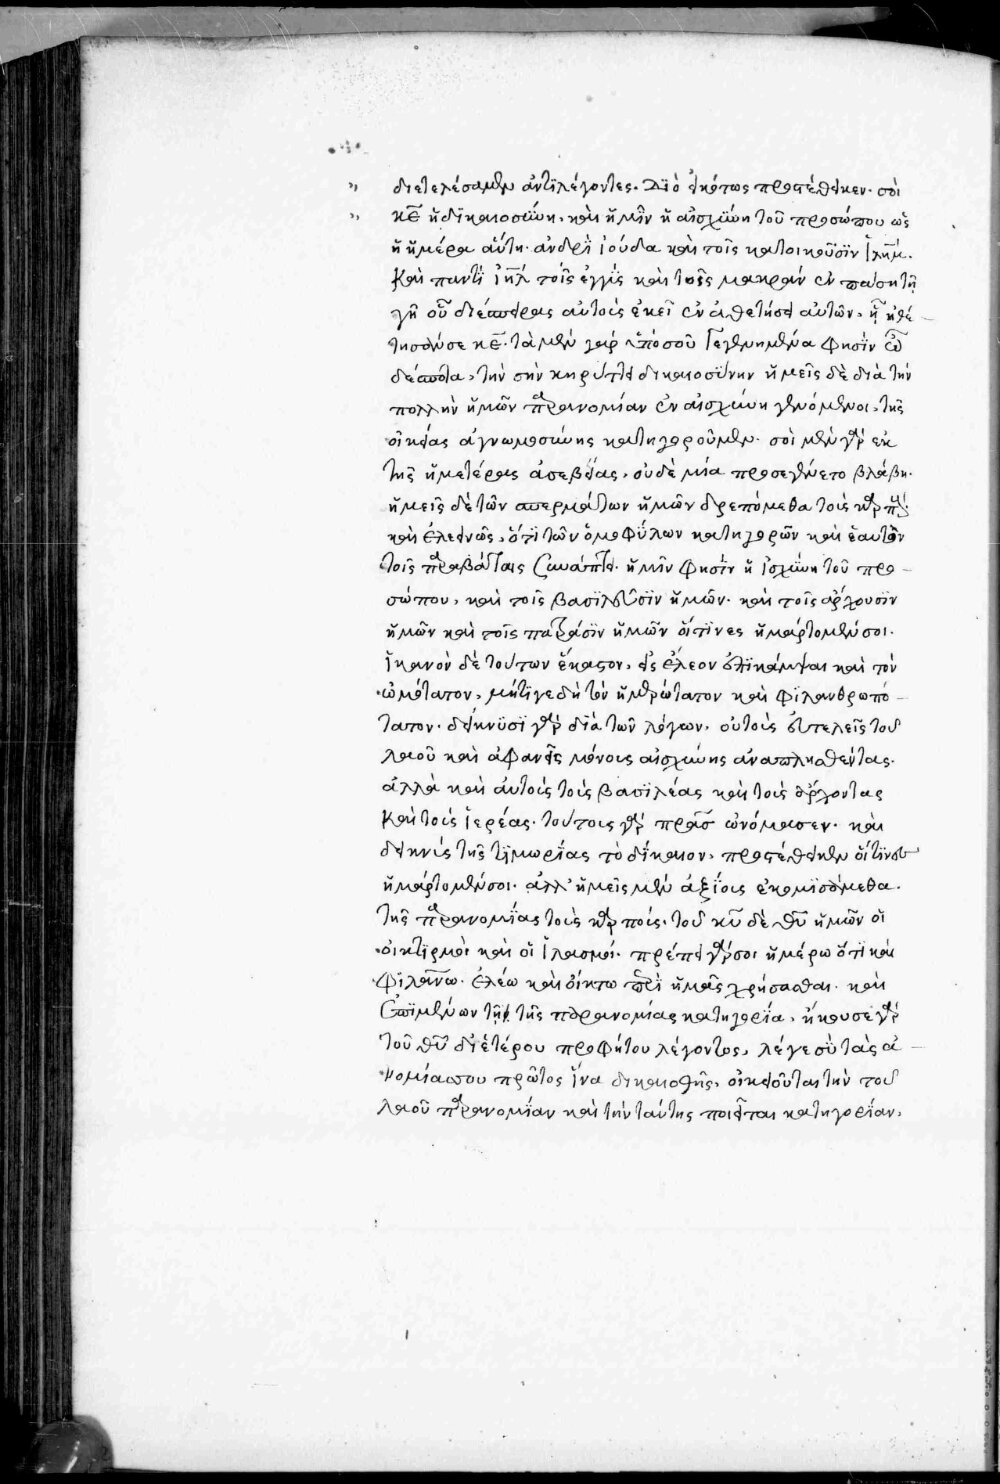 διετελέσαμεν ἀντιλέγοντες. Διὸ εἰκότως προστέθεικεν. σοὶ
κε ἡ δικαιοσύνη, καὶ ἡμῖν ἡ αἰσχύνη τοῦ προσώπου ὡς
ἡ ἡμέρα αὕτη. ἀνδρὶ ἰούδα καὶ τοῖς κατοικοῦσιν ἱλημ.
Καὶ παντὶ ἰηλ τοῖς ἐγγὺς καὶ τοῖς μακρὰν ἐν πάσῃ τῇ
γῇ οὗ διέσπειρας αὐτοὺς ἐκεῖ ἐν ἀθετήσει αὐτῶν, ᾗ ἠθέ
τησάν σε κε. τὰ μὲν γὰρ ὑπό σου γεγενημένα φησὶν ὦ
δέσποτα, τὴν σὴν κηρύττει δικαιοσύνην ἡμεῖς δὲ διὰ τὴν
πολλὴν ἡμῶν παρανομίαν ἐν αἰσχύνῃ γενόμενοι, τῆς
οἰκείας ἀγνωμοσύνης κατηγοροῦμεν. σοὶ μὲν γὰρ ἐκ
τῆς ἡμετέρας ἀσεβείας, οὐδὲ μία προσεγένετο βλάβη.
ἡμεῖς δὲ τῶν σπερμάτων ἡμῶν δρεπόμεθα τοὺς καρπούς.
καὶ ἐλεεινῶς, ὅτι τῶν ὁμοφύλων κατηγορῶν καὶ ἑαυτὸν
τοῖς παραβάταις συνάπτει. ἡμῖν φησὶν ἡ ἰσχύνη τοῦ προ
σώπου, καὶ τοῖς βασιλεῦσιν ἡμῶν. καὶ τοῖς ἄρχουσιν
ἡμῶν καὶ τοῖς πατράσιν ἡμῶν οἵτινες ἡμάρτομέν σοι.
ἱκανὸν δὲ τούτων ἕκαστον, εἰς ἔλεον ἐπικάμψαι καὶ τὸν
ὠμότατον, μήτιγε δὴ τὸν ἡμερώτατον καὶ φιλανθρωπό
τατον. δείκνυσι γὰρ διὰ τῶν λόγων, οὐ τοὺς εὐτελεῖς τοῦ
λαοῦ καὶ ἀφανεῖς μόνους αἰσχύνης ἀναπλησθέντας.
ἀλλὰ καὶ αὐτοὺς τοὺς βασιλέας καὶ τοὺς ἄρχοντας
καὶ τοὺς ἱερέας. τούτους γὰρ πρας ὠνόμασεν. καὶ
δεικνὺς τῆς τιμωρίας τὸ δίκαιον, προστέθεικεν οἵτινες
ἡμάρτομέν σοι. ἀλλ' ἡμεῖς μὲν ἀξίους ἐκομισάμεθα.
τῆς παρανομίας τοὺς καρπούς. τοῦ κυ δὲ θυ ἡμῶν οἱ
οἰκτιρμοὶ καὶ οἱ ἱλασμοί. πρέπει γάρ σοι ἡμέρω ὄτι καὶ
φιλανω. ἐλέω καὶ οἴκτω περὶ ἡμᾶς χρήσασθαι. καὶ
ἐπιμένων τῇ τῆς παρανομίας κατηγορία, ἤκουσε γὰρ
τοῦ θυ δι' ἑτέρου προφήτου λέγοντος, λέγε σὺ τὰς ἀ
νομίας σου πρῶτος ἵνα δικαιωθῇς, οἰκειοῦται τὴν τοῦ
λαοῦ παρανομίαν καὶ τὴν ταύτης ποιεῖται κατηγορίαν,